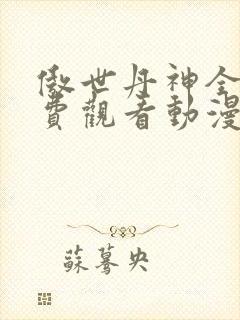 傲世丹神全
費觀看動漫
蘇驀央